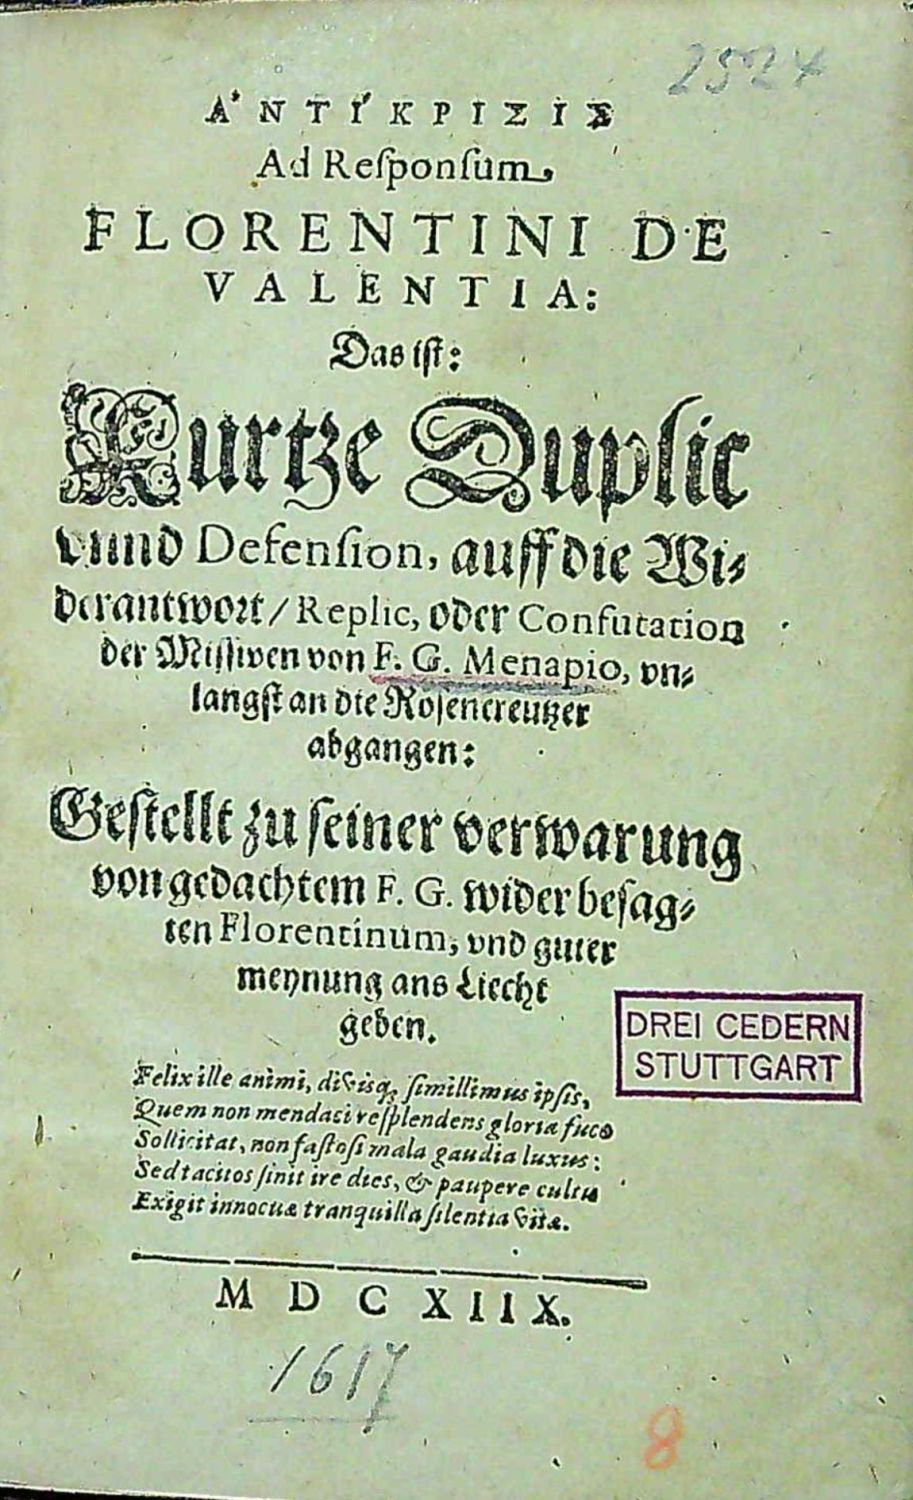 2524
ἈΝΤΊΚΡΙΣΙΣ
Ad Reſponſum,
FLORENTINI DE
VALENTIA:
Das iſt:
Kurtze Duplic
vnnd Defenſion, auff die Wi⸗
derantwort/ Replic, oder Confutation
der Miſſiven von F. G. Menapio, vn⸗
langſt an die Roſencreutzer
abgangen:
Geſtellt zu ſeiner verwarung
von gedachtem F. G. wider beſag⸗
ten Florentinum, vnd guter
meynung ans Liecht
geben.
DREI CEDERN
STUTTGART
Felix ille animi, diviſq; ſimillimus ipſis,
Quem non mendaci reſplendens gloria fuco
Sollicitat, non faſtoſi mala gaudia luxus:
Sed tacitos ſinit ire dies, & paupere cultu
Exigit innocuæ tranquilla ſilentia vitæ.
MDCXIIX.
1617
8